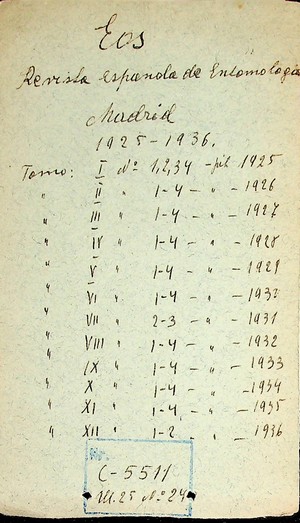 Eos
Revista española de Entomologia
Madrid
1925-1936.
Tomo: I Nº 1,2,34 - 1925
" II " 1-4 - " - 1926
" III " 1-4 - " - 1927
" IV " 1-4 - " - 1928
" V " 1-4 - " - 1929
" VI " 1-4 - " - 1930
" VII " 2-3 - " - 1931
" VIII " 1-4 - " - 1932
" IX " 1-4 - " - 1933
" X " 1-4 - " - 1934
" XI " 1-4 - " - 1935
" XII " 1-2 - " - 1936
C-551/
Nº 24